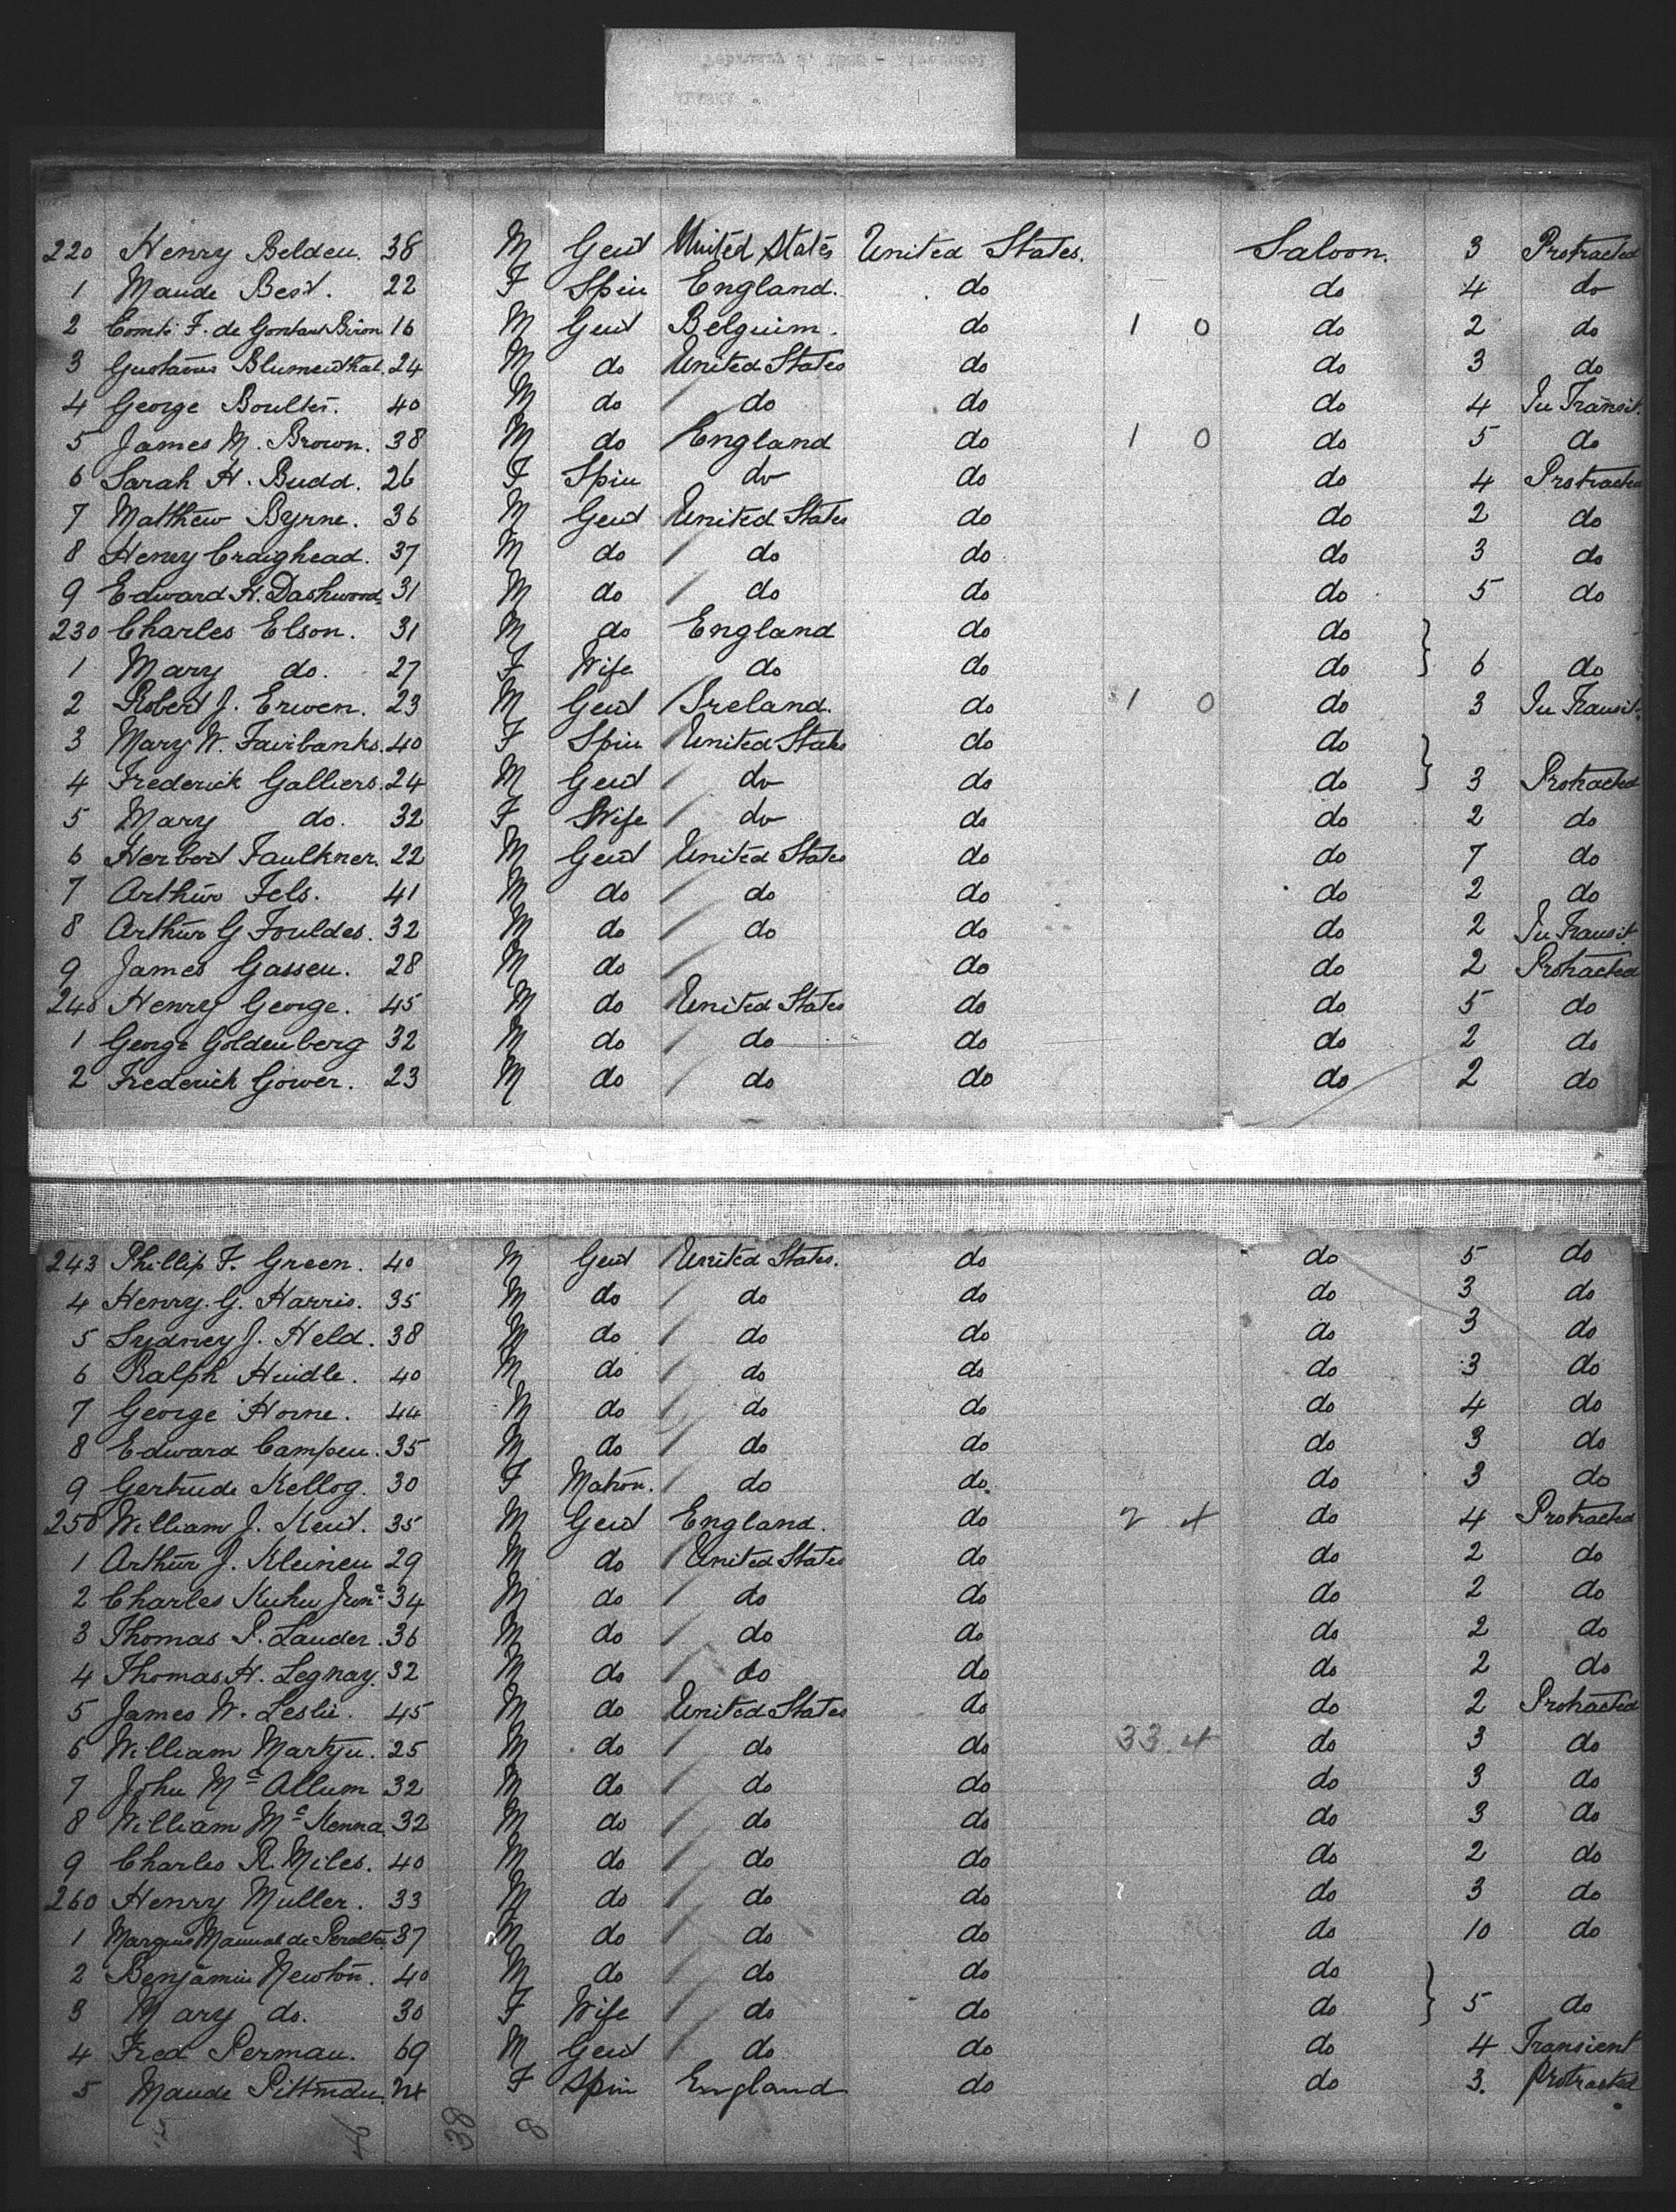 220 Henry Belden. 38 M Gent United States United States. Saloon. 3 Protracted
1 Maude Best. 22 F Spin England. do do 4 do
2 Comte F. de Gontaut Biron 16 M Gent Belguim. do 1 0 do 2 do
3 Gustavus Blumenthal. 24 M do United States do do 3 do
4 George Boulter. 40 M do do do do 4 In Transit.
5 James M. Brown. 38 M do England do 1 0 do 5 do
6 Sarah H. Budd. 26 F Spin do do do 4 Protracted
7 Matthew Byrne. 36 M Gent United States do do 2 do
8 Henry Craighead. 37 M do do do do 3 do
9 Edward H. Dashwood. 31 M do do do do 5 do
230 Charles Elson. 31 M do England do do
1 Mary do. 27 F Wife do do do } 6 do
2 Robert J. Erwen. 23 M Gent Ireland. do 1 0 do 3 In Transit.
3 Mary W. Fairbanks. 40 F Spin United States do do
4 Frederick Galliers. 24 M Gent do do do } 3 Protracted
5 Mary do. 32 F Wife do do do 2 do
6 Herbert Faulkner. 22 M Gent United States do do 7 do
7 Arthur Fels. 41 M do do do do 2 do
8 Arthur G Fouldes. 32 M do do do do 2 In Transit.
9 James Gassen. 28 M do do do 2 Protracted
240 Henry George. 45 M do United States do do 5 do
1 George Goldenberg 32 M do do do do 2 do
2 Frederick Gower. 23 M do do do do 2 do
243 Phillip F. Green. 40 M Gent United States. do do 5 do
4 Henry. G. Harris. 35 M do do do do 3 do
5 Sydney J. Held. 38 M do do do do 3 do
6 Ralph Hindle. 40 M do do do do 3 do
7 George Horne. 44 M do do do do 4 do
8 Edward Campen. 35 M do do do do 3 do
9 Gertrude Kellog. 30 F Matron. do do. do 3 do
250 William J. Kent. 35 M Gent England. do 2 4 do 4 Protracted
1 Arthur J. Kleinen 29 M do United States do do 2 do
2 Charles Kuhn Junr 34 M do do do do 2 do
3 Thomas P. Lauder. 36 M do do do do 2 do
4 Thomas H. Legnay. 32 M do do do do 2 do
5 James W. Leslie. 45 M do United States do do 2 Protracted
6 William Martyn. 25 M do do do 33. 4 do 3 do
7 John Mc Allum 32 M do do do do 3 do
8 William Mc Kenna. 32 M do do do do 3 do
9 Charles R. Miles. 40 M do do do do 2 do
260 Henry Muller. 33 M do do do do 3 do
1 Marquis Manual de Peralta. 37 M do do do do 10 do
2 Benjamin Newton. 40 M do do do do
3 Mary do. 30 F Wife do do do } 5 do
4 Fred Perman. 69 M Gent do do do 4 Transient
5 Maude Pittman. 24 F Spin England do do 3. Protracted
38 8